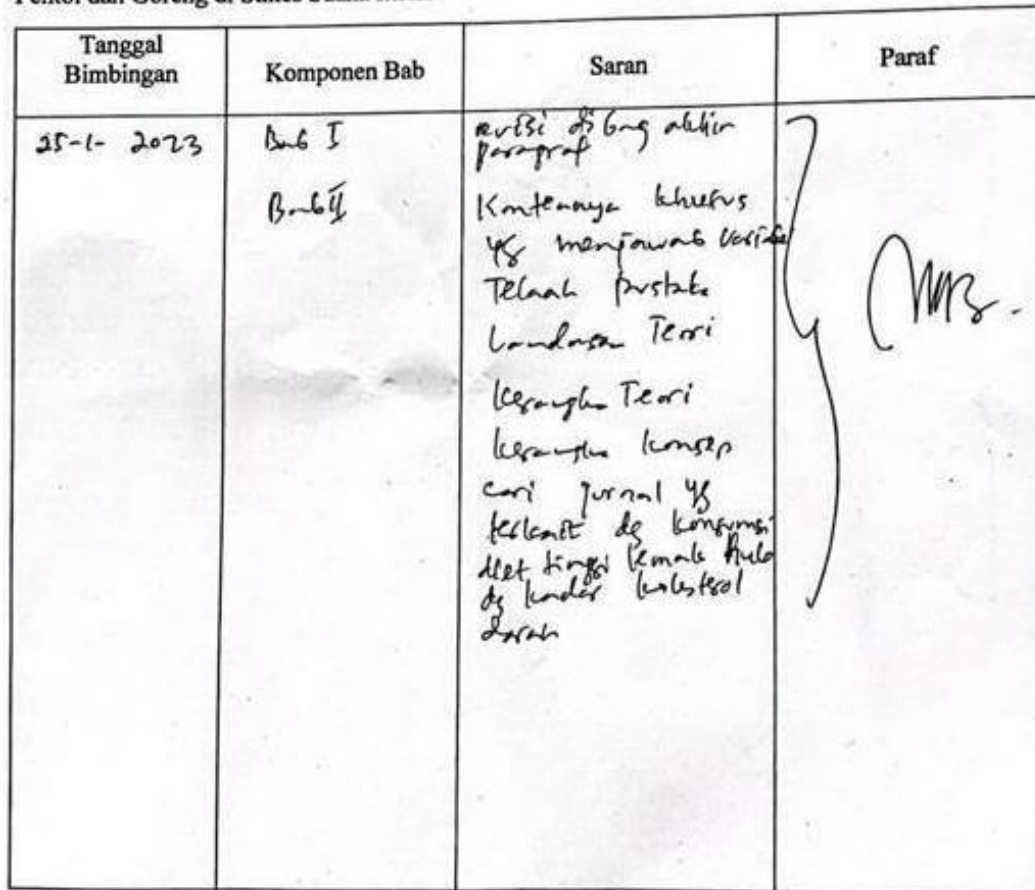 Tanggal
Bimbingan
Komponen Bab
Saran
Paraf
25-1-2023
Bab I
revisi di bag akhir
paragraf
Bab II
Kontennya khusus
yg menjawab variabel
Telaah pustaka
Landasan Teori
kerangka Teori
kerangka konsep
cari jurnal yg
terkait dg konsumsi
diet tinggi lemak
dg kadar kolesterol
darah